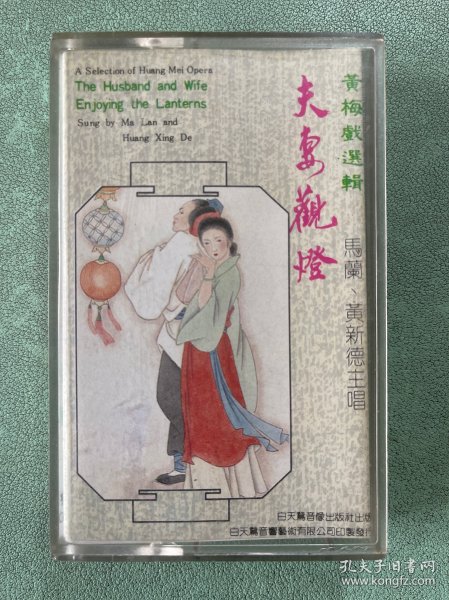 A Selection of Huang Mei Opera
The Husband and Wife
Enjoying the Lanterns
Sung by Ma Lan and
Huang Xing De
黃梅戲選輯
夫妻觀燈
馬蘭、黃新德主唱
白天鵝音像出版社出版
白天鵝音響藝術有限公司印製發行
孔夫子旧书网
www.kongfz.com